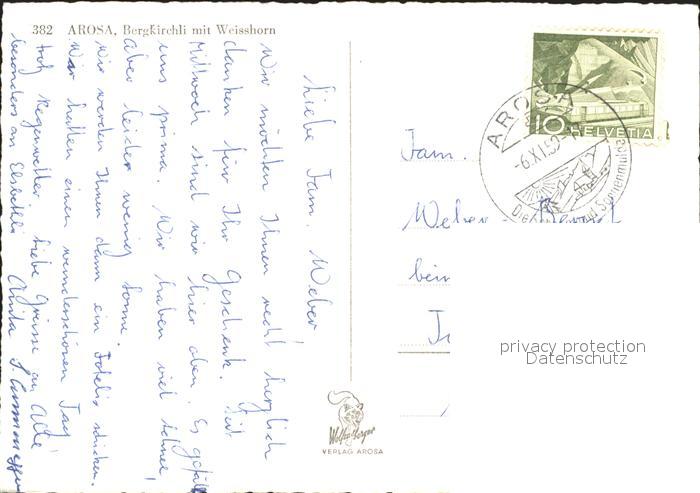 382 AROSA, Bergkirchli mit Weisshorn
Liebe Fam. Weber!
Wir möchten Ihnen recht herzlich
danken für Ihr Geschenk. Seit
Mittwoch sind wir hier oben. Es gefällt
uns prima. Wir haben viel Schnee,
aber leider wenig Sonne.
wir werden Ihnen dann ein Foteli schicken.
Wir hatten einen wunderschönen Tag
trotz Regenwetter. Liebe Grüsse an Alle
besonders an Elsbethli Anita
AROSA
-6.XI.52
Die und Sonnenm
10 HELVETIA
Fam.
Weber
beim
privacy protection
Datenschutz
Wolfensberger
VERLAG AROSA